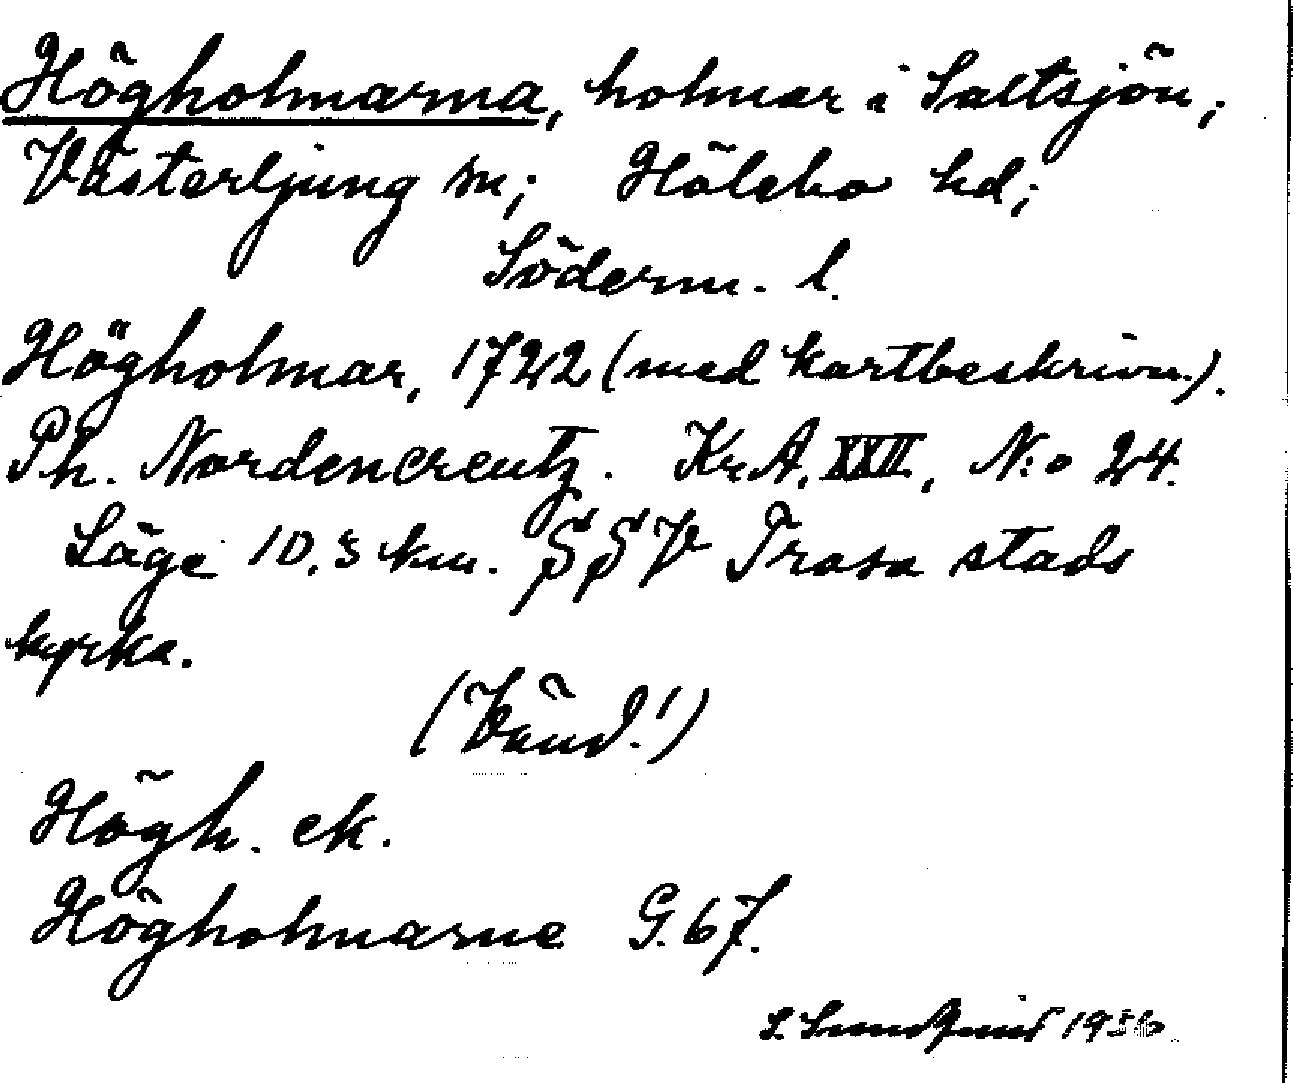 Högholmarna, holmar i Saltsjön;
Västerljung sn; Hölebo hd;
Söderm. l.
Högholmar, 1722 (med kartbeskrivn.).
Ph. Nordencreutz. KrA. XXII, N:o 24.
Läge 10,5 km. SSV Trosa stads
kyrka.
(Vänd!)
Högh. ek.
Högholmarne G. 67.
S. Lundqvist 1936